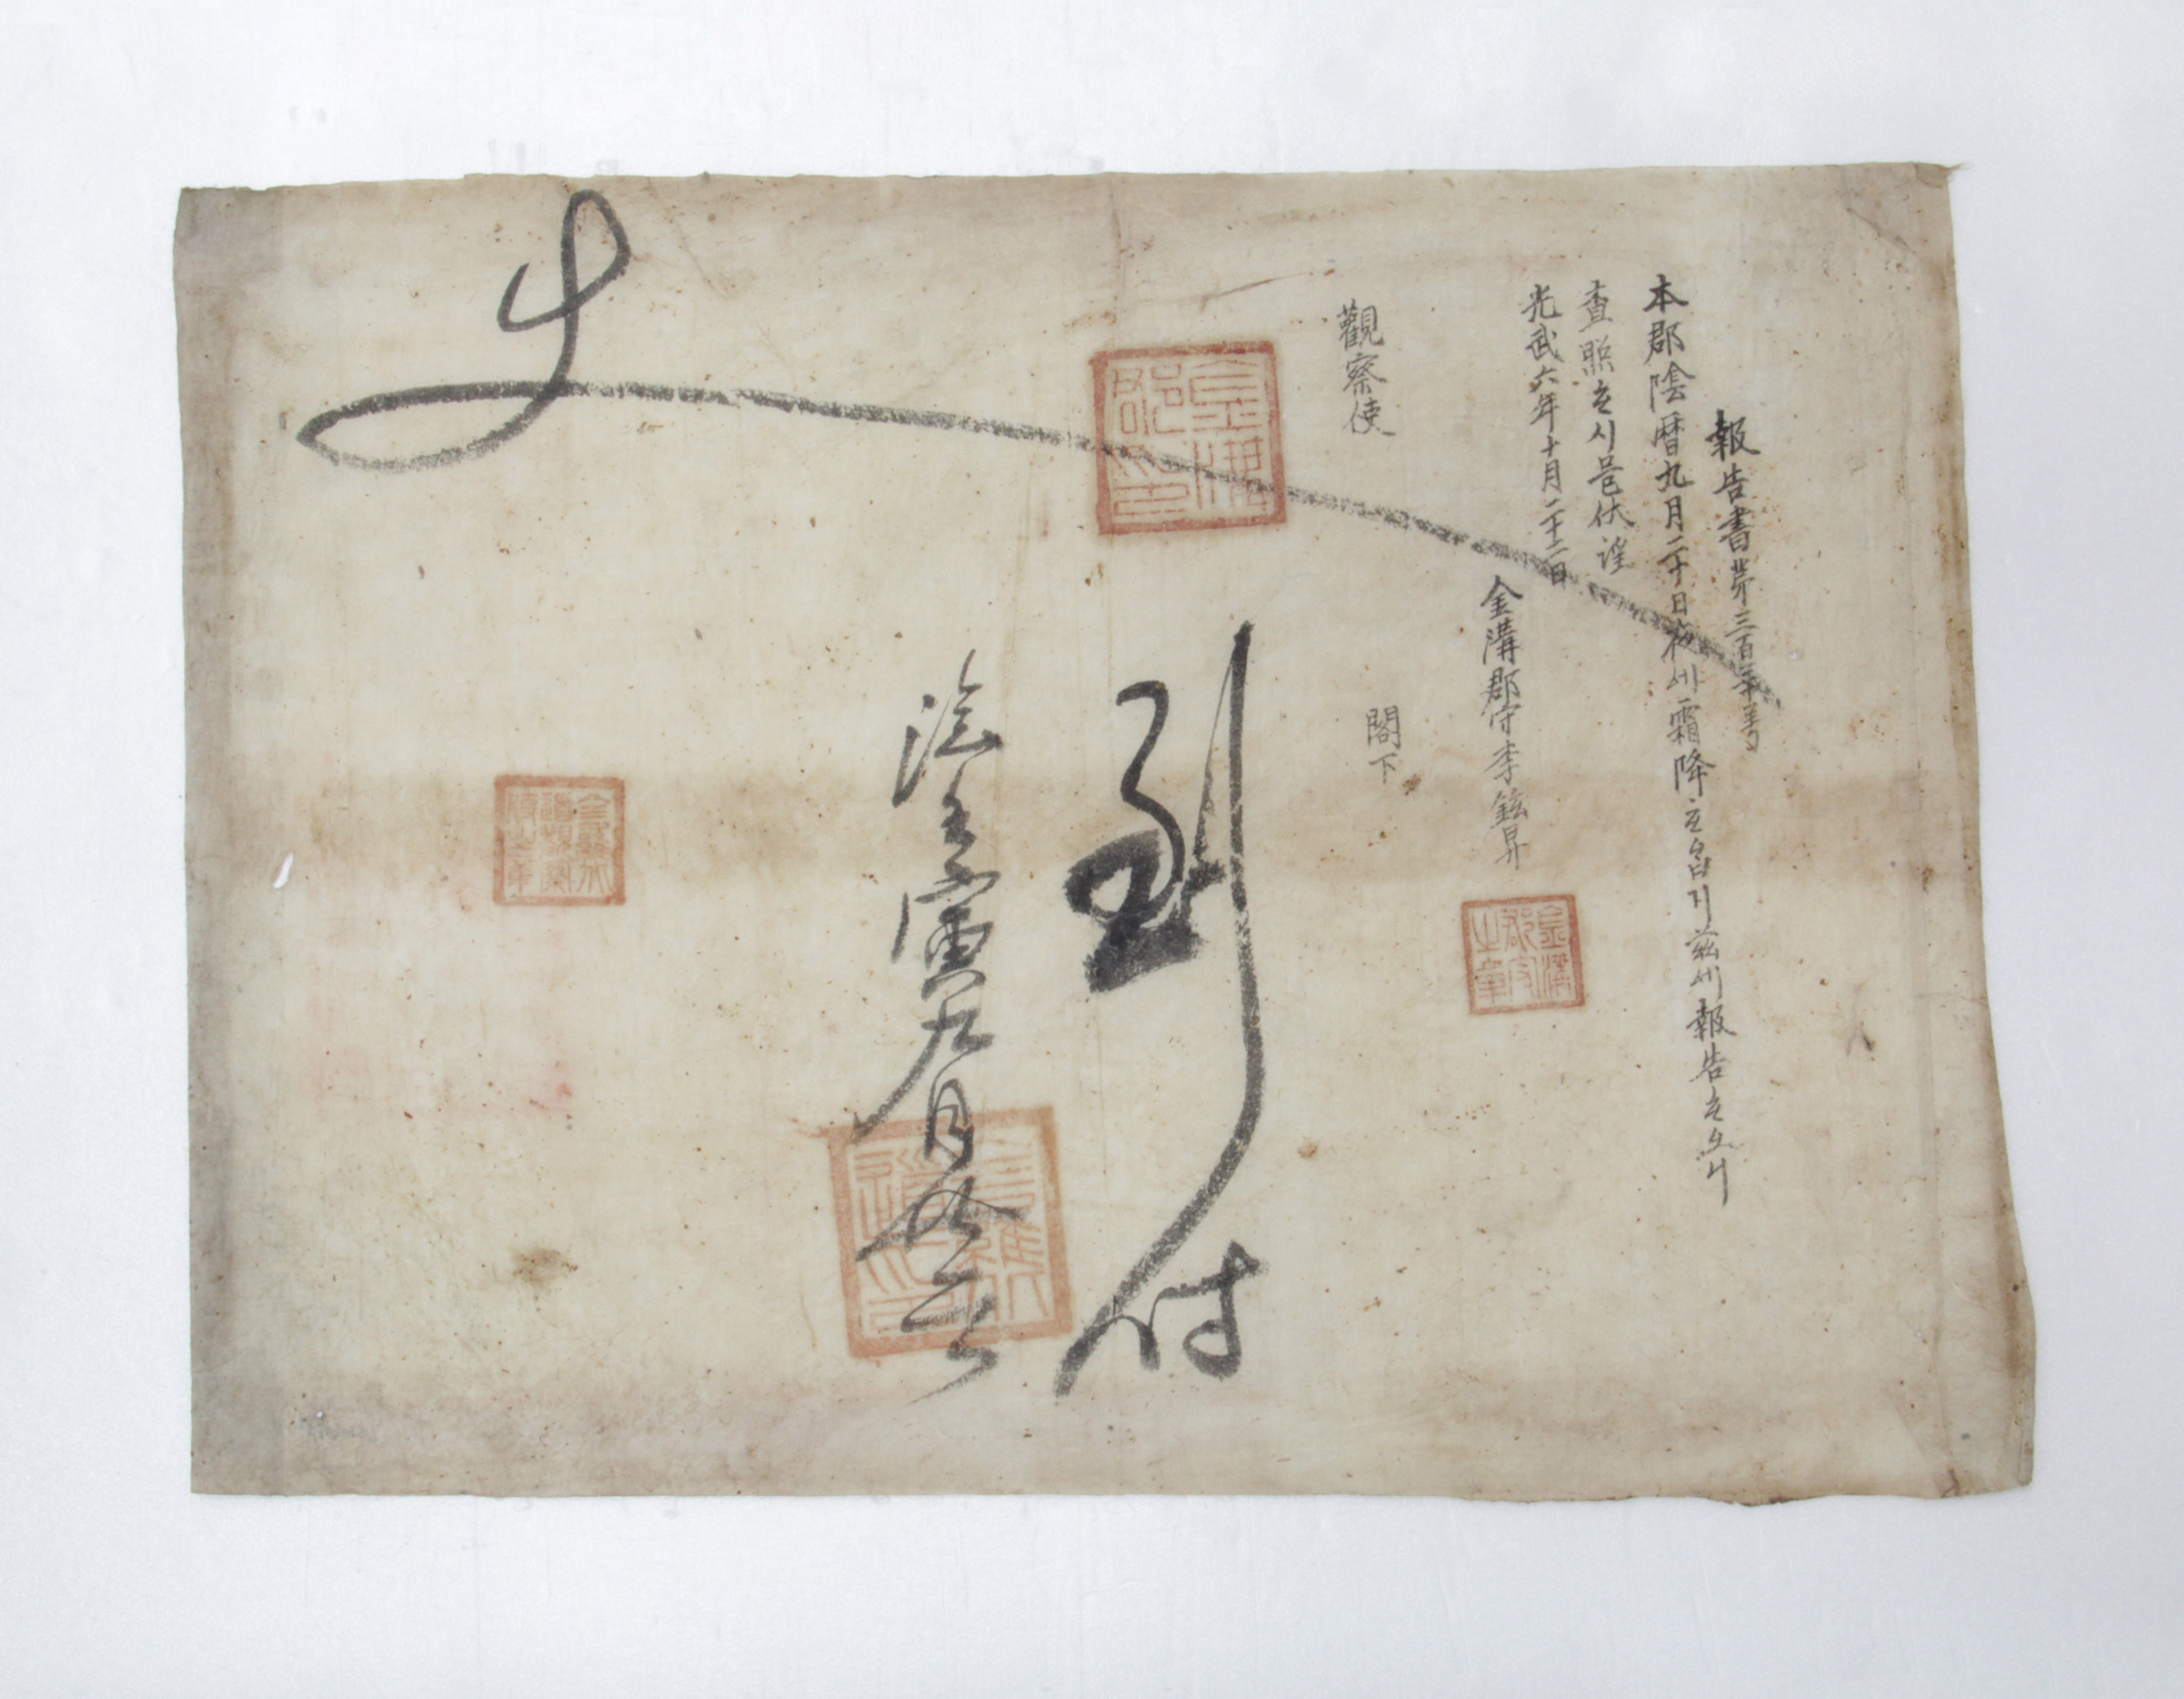 報告書第三百 号
本郡陰曆九月二十日夜에霜降ᄒᆞ얏기玆에報告ᄒᆞ오니
査照ᄒᆞ시믈伏望
光武六年十月二十二日
金溝郡守李鉉昇
觀察使 閣下
到付
壬寅九月